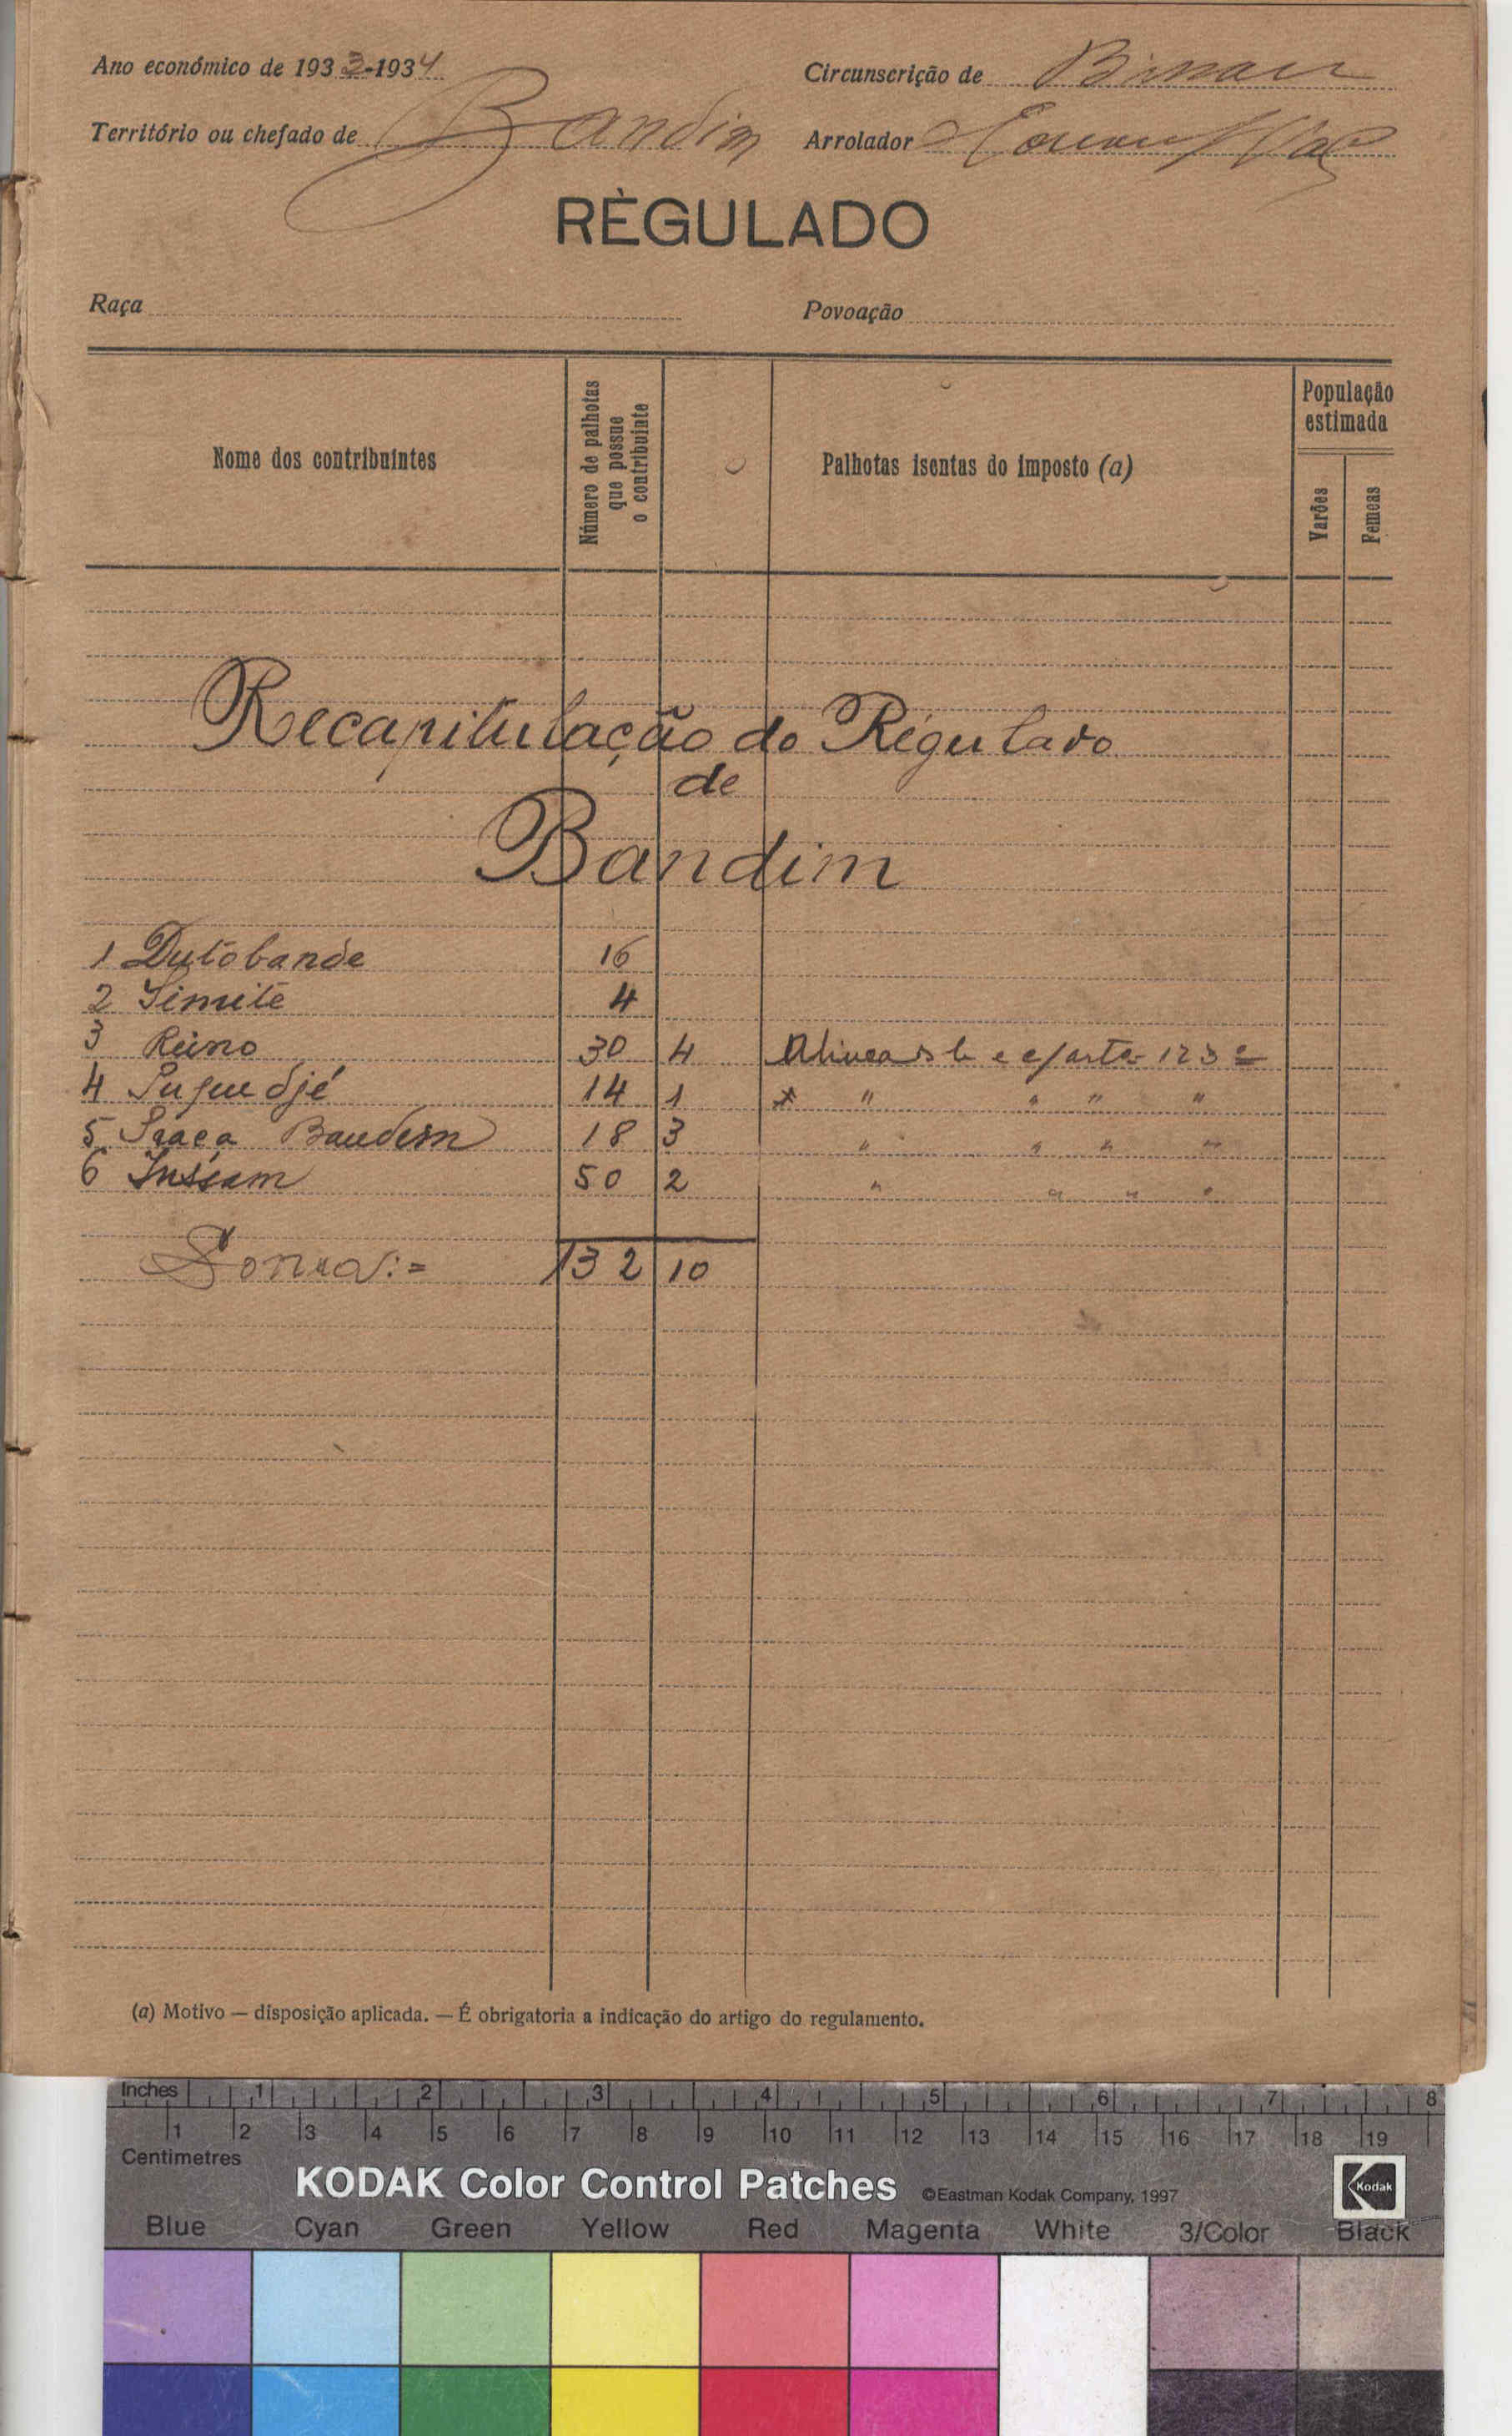 Ano económico de 1933-1934
Circunscrição de Bissau
Território ou chefado de Bandim
Arrolador
RÈGULADO
Raça
Povoação
Nome dos contribuintes
Número de palhotas que possue o contribuinte
Palhotas isentas do imposto (a)
População estimada
Varões
Femeas
Recapitulação do Régulado
de
Bandim
1 Dutobande 16
2 4
3 Reino 30 4 Alineas b e c/ artº 123º
4 14 1 " " " "
5 Praça Bandim 18 3 " " " "
6 Inssam 50 2 " " " "
Soma:= 132 10
(a) Motivo — disposição aplicada. — É obrigatoria a indicação do artigo do regulamento.
Inches 1 2 3 4 5 6 7 8
1 2 3 4 5 6 7 8 9 10 11 12 13 14 15 16 17 18 19
Centimetres
KODAK Color Control Patches ©Eastman Kodak Company, 1997 Kodak
Blue Cyan Green Yellow Red Magenta White 3/Color Black